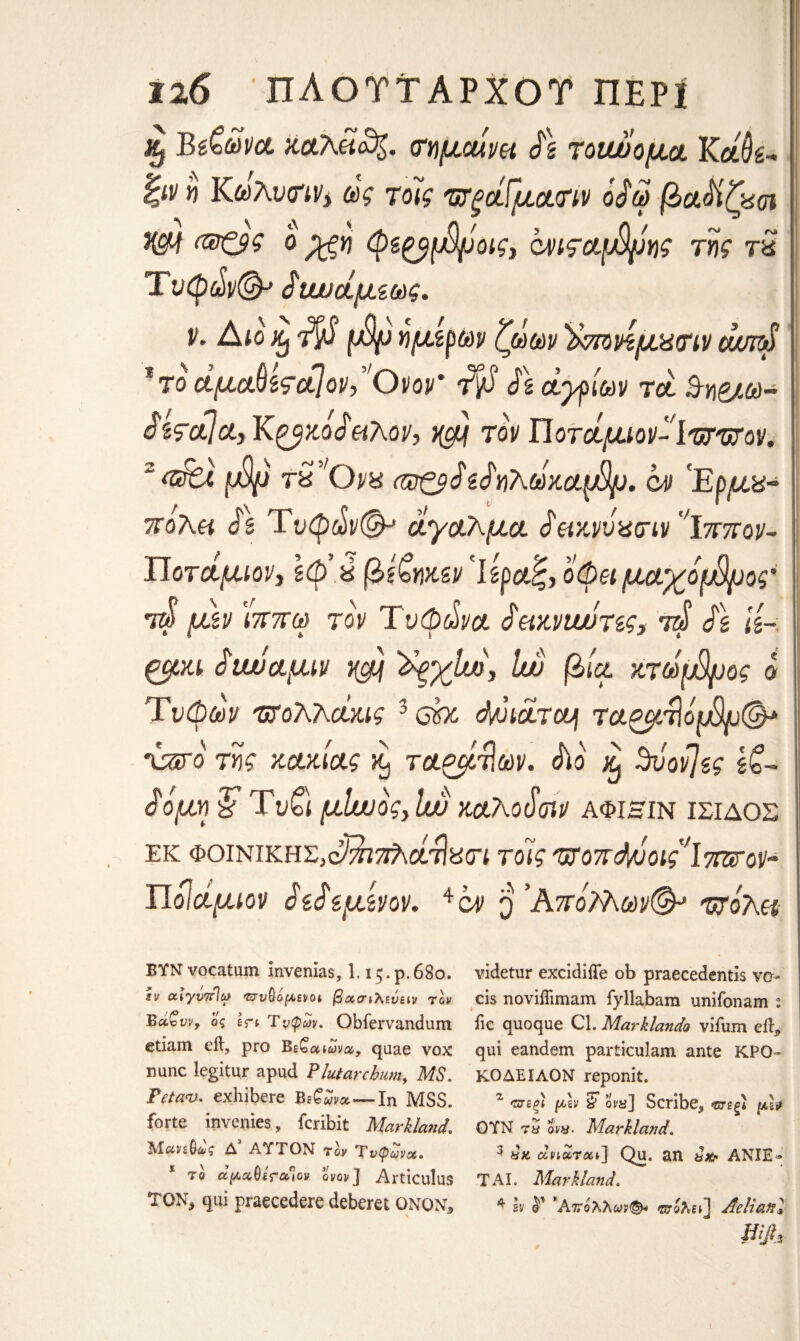 126 ΠΛΟΥΤΑΡΧΟΥ ΠΕΡΙ
ϗ̀ Βεβῶνα καλεῖϑς. σημαίνει δὲ τοὔνομα Κάθε-
ξιν ἢ Κώλυσιν, ὡς τοῖς πράγμασιν ὁδῷ βαδίζουσι
καὶ πρὸς ὃ χρὴ φερομένοις, ἐνισταμένης τῆς τοῦ
Τυφῶνος δυνάμεως.
ν. Διὸ ϗ̀ τῶν μὲν ἡμέρων ζώων ἀπονέμουσιν αὐτῷ
¹τὸ ἀμαθέστατον, Ὄνον· τῶν δὲ ἀγρίων τὰ θηριω-
δέστατα, Κροκόδειλον, καὶ τὸν Ποτάμιον-Ἵππον.
²περὶ μὲν τοῦ Ὄνου προδεδηλώκαμεν. ἐν Ἑρμου-
πόλει δὲ Τυφῶνος ἄγαλμα δεικνύουσιν Ἵππον-
Ποτάμιον, ἐφ’ οὗ βέβηκεν Ἱέραξ, ὄφει μαχόμενος·
τῷ μὲν ἵππῳ τὸν Τυφῶνα δεικνύντες, τῷ δὲ ἱέ-
ρακι δύναμιν καὶ ἀρχὴν, ἣν βίᾳ κτώμενος ὁ
Τυφὼν πολλάκις ³ οὐκ ἀνιᾶται ταραττόμενος
ὑπὸ τῆς κακίας ϗ̀ ταράττων. διὸ ϗ̀ θύοντες ἑβ-
δόμῃ τοῦ Τυβὶ μηνὸς, ἣν καλοῦσιν ΑΦΙΞΙΝ ΙΣΙΔΟΣ
ΕΚ ΦΟΙΝΙΚΗΣ, ἐπιπλάττουσι τοῖς ποπάνοις Ἵππον-
Ποτάμιον δεδεμένον. ⁴ἐν δὲ Ἀπόλλωνος πόλει
ΒΥΝ vocatum invenias, l. 15. p. 680.
ἐν αἰγύπτῳ πυθόμενοι βασιλεύειν τὸν
Βάβυν, ὅς ἐστι Τυφῶν. Obſervandum
etiam eſt, pro Βεβαιῶνα, quae vox
nunc legitur apud Plutarchum, MS.
Petav. exhibere Βεβῶνα — In MSS.
forte invenies, ſcribit Markland.
Μανεθὼς Δ’ ΑΥΤΟΝ τὸν Τυφῶνα.
¹ τὸ ἀμαθέστατον ὄνον] Articulus
ΤΟΝ, qui praecedere deberet ΟΝΟΝ,
videtur excidiſſe ob praecedentis vo-
cis noviſſimam ſyllabam uniſonam :
ſic quoque Cl. Marklando viſum eſt,
qui eandem particulam ante ΚΡΟ-
ΚΟΔΕΙΛΟΝ reponit.
² περὶ μὲν τοῦ ὄνου] Scribe, περὶ μὲν
ΟΥΝ τοῦ ὄνου. Markland.
³ οὐκ ἀνιᾶται] Qu. an οὐκ ΑΝΙΕ-
ΤΑΙ. Markland.
⁴ ἐν δ’ Ἀπόλλωνος πόλει] Aelian.
Hiſt.